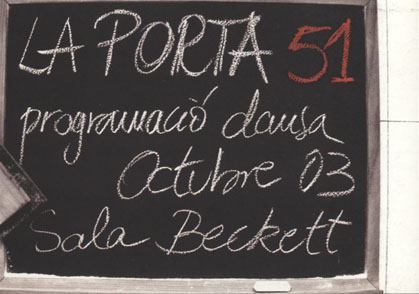 LA PORTA 51
programació dansa
Octubre 03
Sala Beckett